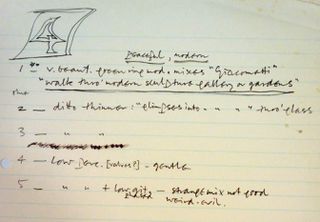 4
Peaceful, modern
1 — v. beaut. green ring mod. mixes "Giacometti"
"walk thro' modern sculpture gallery or gardens"
2 — ditto thinner: "glimpses into - " " thro' glass
3 — " "
4 — Low [valves?] - gentle
5 — " " + low git. — strange mix not good
weird. evil.